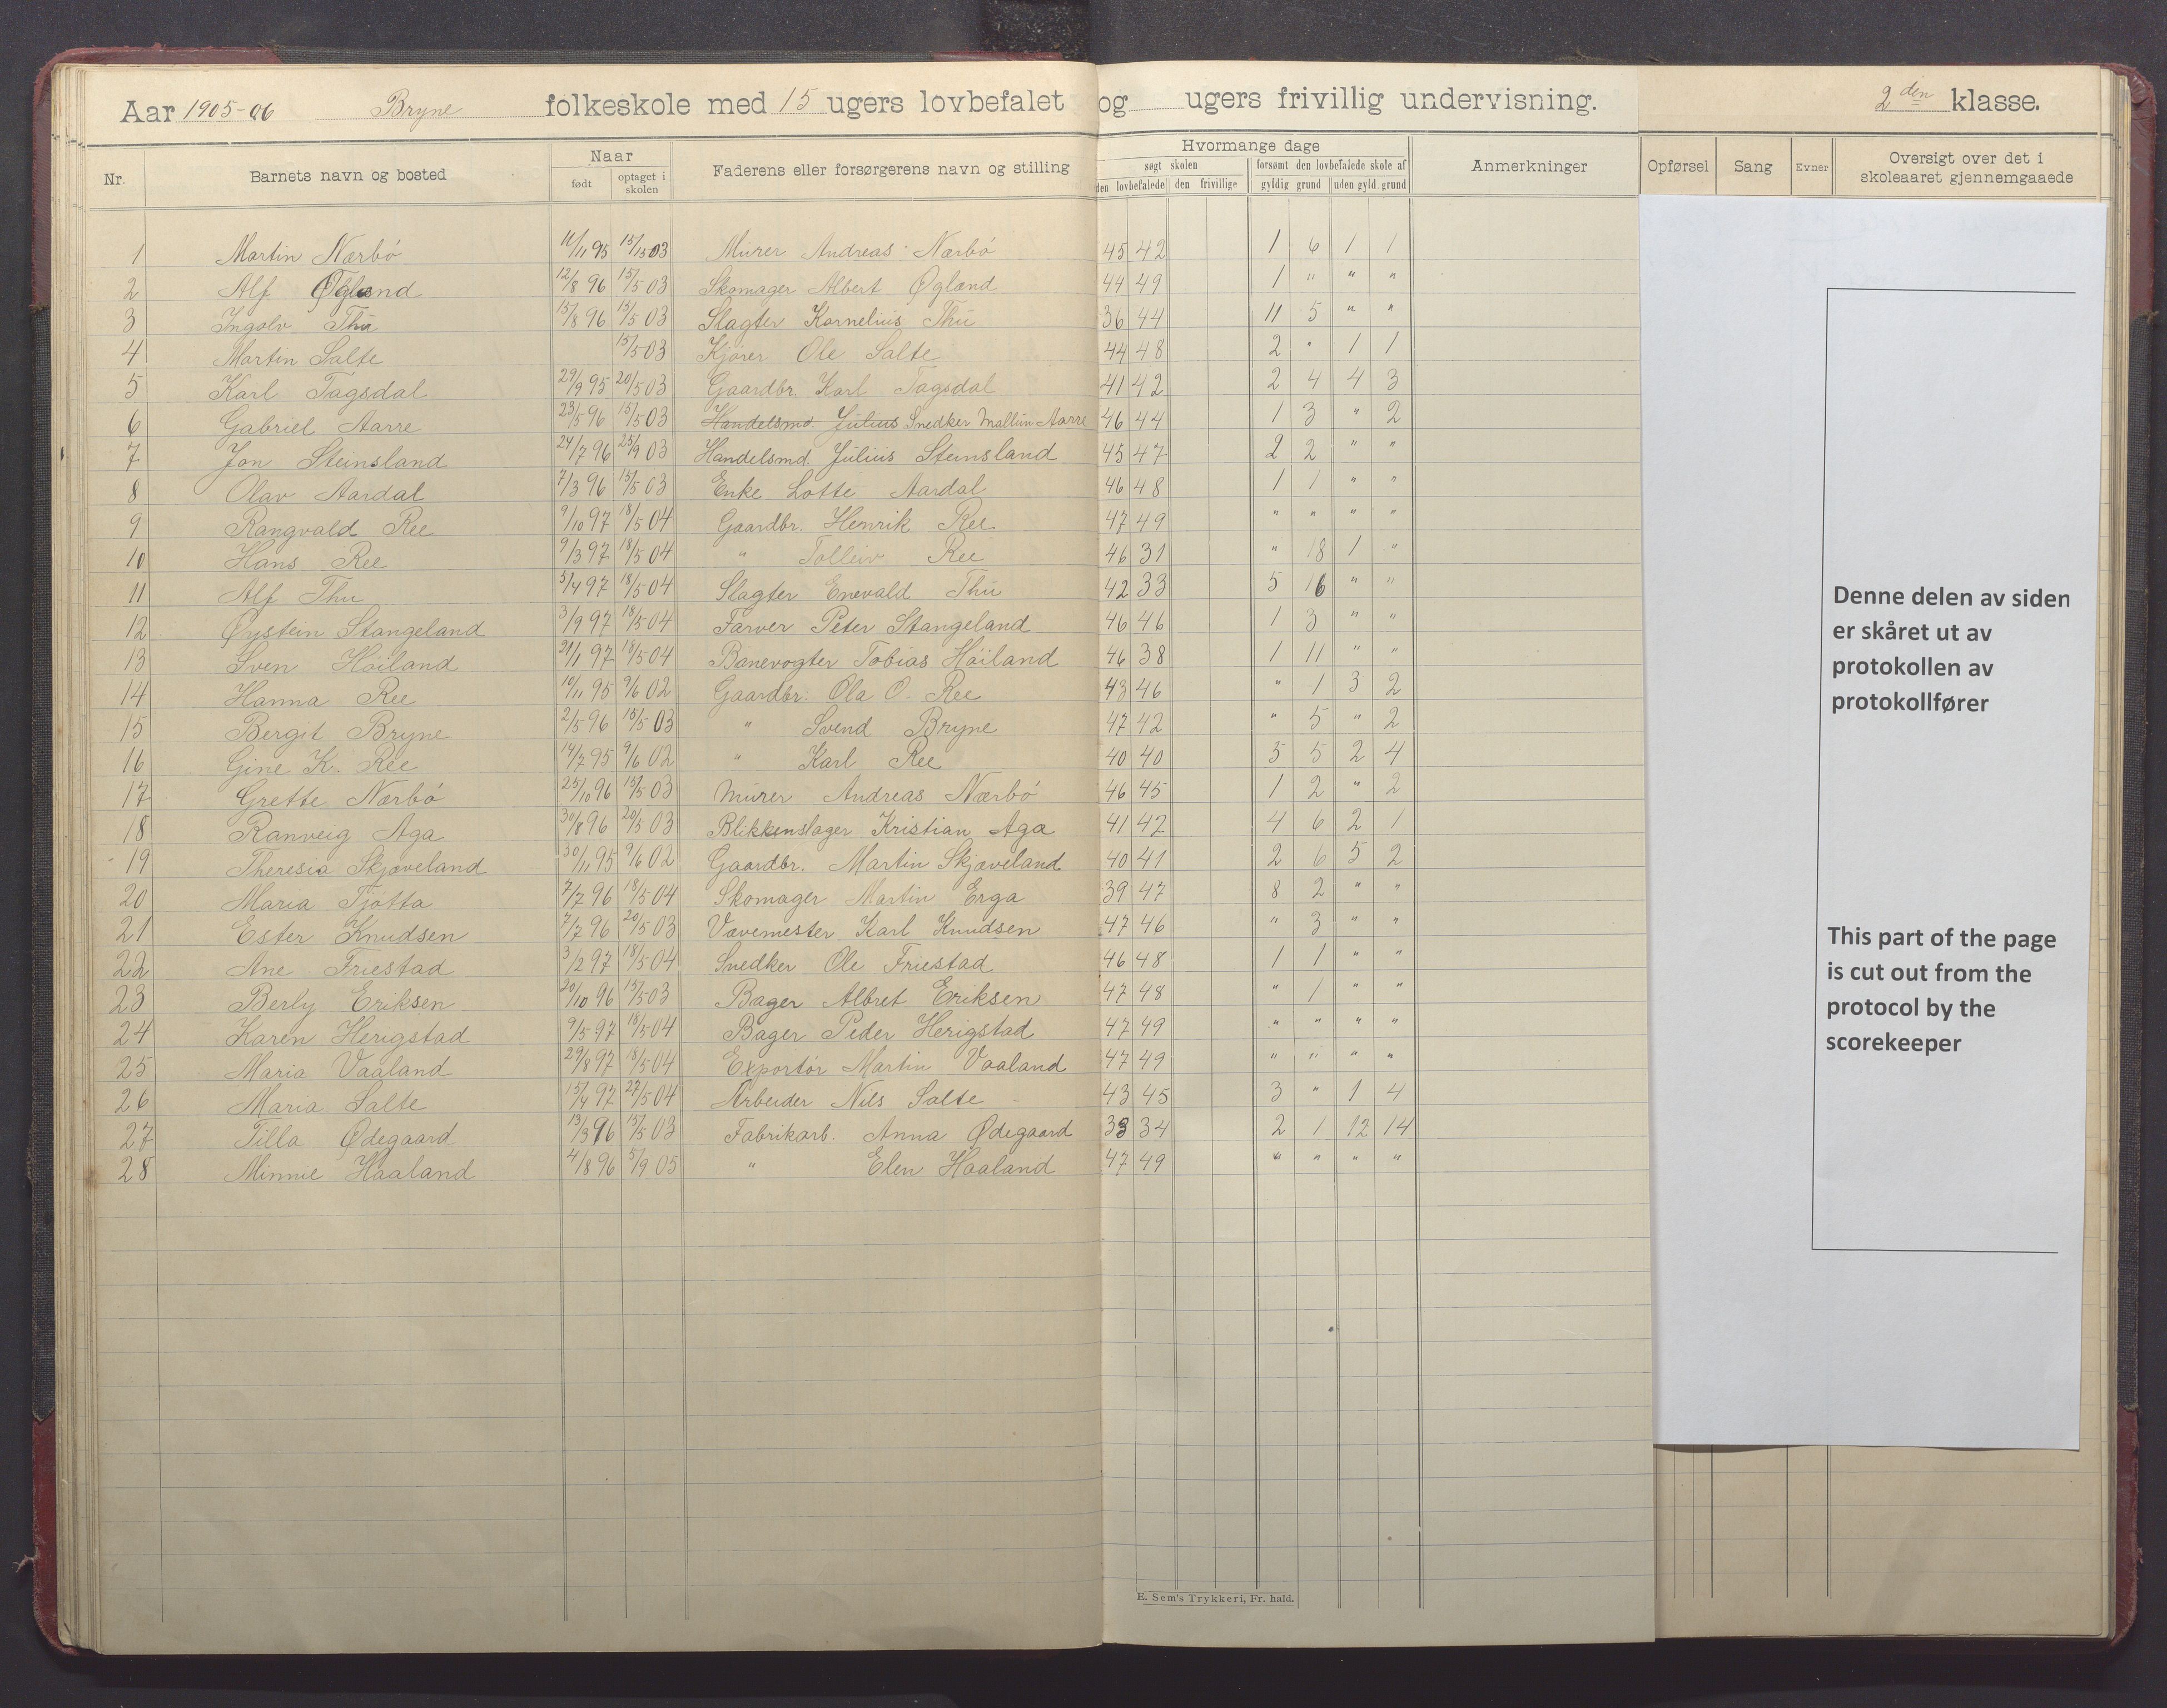 Aar 1905-06 Bryne folkeskole med 15 ugers lovbefalet og ugers frivillig undervisning. 2den klasse.
Nr. Barnets navn og bosted Naar født optaget i skolen Faderens eller forsørgerens navn og stilling Hvormange dage søgt skolen den lovbefalede den frivillige forsømt den lovbefalede skole af gyldig grund uden gyld grund Anmerkninger Opførsel Sang Evner Oversigt over det i skoleaaret gjennemgaaede
1 Martin Nærbö 11/11 95 15/5 03 Murer Andreas Nærbö 45 42 1 6 1 1
2 Alf Øgland 12/8 96 15/5 03 Skomager Albert Øgland 44 49 1 " " "
3 Ingolv Thu 15/8 96 15/5 03 Slagter Kornelius Thu 36 44 11 5 " "
4 Martin Salte 15/5 03 Kjører Ole Salte 44 48 2 " 1 1
5 Karl Tagsdal 29/9 95 20/5 03 Gaardbr. Karl Tagsdal 41 42 2 4 4 3
6 Gabriel Aarre 23/5 96 15/5 03 Handelsmd. Julius Snedker Mallun Aarre 46 44 1 3 " 2
7 Jon Steinsland 24/7 96 25/9 03 Handelsmd. Julius Steinsland 45 47 2 2 " "
8 Olav Aardal 7/3 96 15/5 03 Enke Lotte Aardal 46 48 1 1 " "
9 Rangvald Ree 9/10 97 18/5 04 Gaardbr. Henrik Ree 47 49 " " " "
10 Hans Ree 9/3 97 18/5 04 " Tolleiv Ree 46 31 " 18 1 "
11 Alf Thu 5/4 97 18/5 04 Slagter Enevald Thu 42 33 5 16 " "
12 Øystein Stangeland 3/9 97 18/5 04 Farver Peter Stangeland 46 46 1 3 " "
13 Sven Höiland 21/1 97 18/5 04 Banevogter Tobias Höiland 46 38 1 11 " "
14 Hanna Ree 10/11 95 9/6 02 Gaardbr. Ola O. Ree 43 46 " 1 3 2
15 Bergit Bryne 2/5 96 15/5 03 " Svend Bryne 47 42 " 5 " 2
16 Gine K. Ree 14/7 95 9/6 02 " Karl Ree 40 40 5 5 2 4
17 Grette Nærbö 25/10 96 15/5 03 Murer Andreas Nærbö 46 45 1 2 " 2
18 Ranveig Aga 30/8 96 20/5 03 Blikkenslager Kristian Aga 41 42 4 6 2 1
19 Theresia Skjæveland 30/1 95 9/6 02 Gaardbr. Martin Skjæveland 40 41 2 6 5 2
20 Maria Tjötta 7/7 96 18/5 04 Skomager Martin Erga 39 47 8 2 " "
21 Ester Knudsen 7/7 96 20/5 03 Vævemester Karl Knudsen 47 46 " 3 " "
22 Ane Friestad 3/2 97 18/5 04 Snedker Ole Friestad 46 48 1 1 " "
23 Berly Eriksen 20/10 96 15/5 03 Bager Albret Eriksen 47 48 " 1 " "
24 Karen Herigstad 9/5 97 18/5 04 Bager Peder Herigstad 47 49 " " " "
25 Maria Vaaland 29/8 97 18/5 04 Exportör Martin Vaaland 47 49 " " " "
26 Maria Salte 15/4 97 27/5 04 Arbeider Nils Salte 43 45 3 " 1 4
27 Tilla Ødegaard 13/3 96 15/5 03 Fabrikarb. Anna Ødegaard 33 34 2 1 12 14
28 Minnie Haaland 4/8 96 5/9 05 " Elen Haaland 47 49 " " " "
Denne delen av siden
er skåret ut av
protokollen av
protokollfører
This part of the page
is cut out from the
protocol by the
scorekeeper
E. Sem's Trykkeri, Fr. hald.